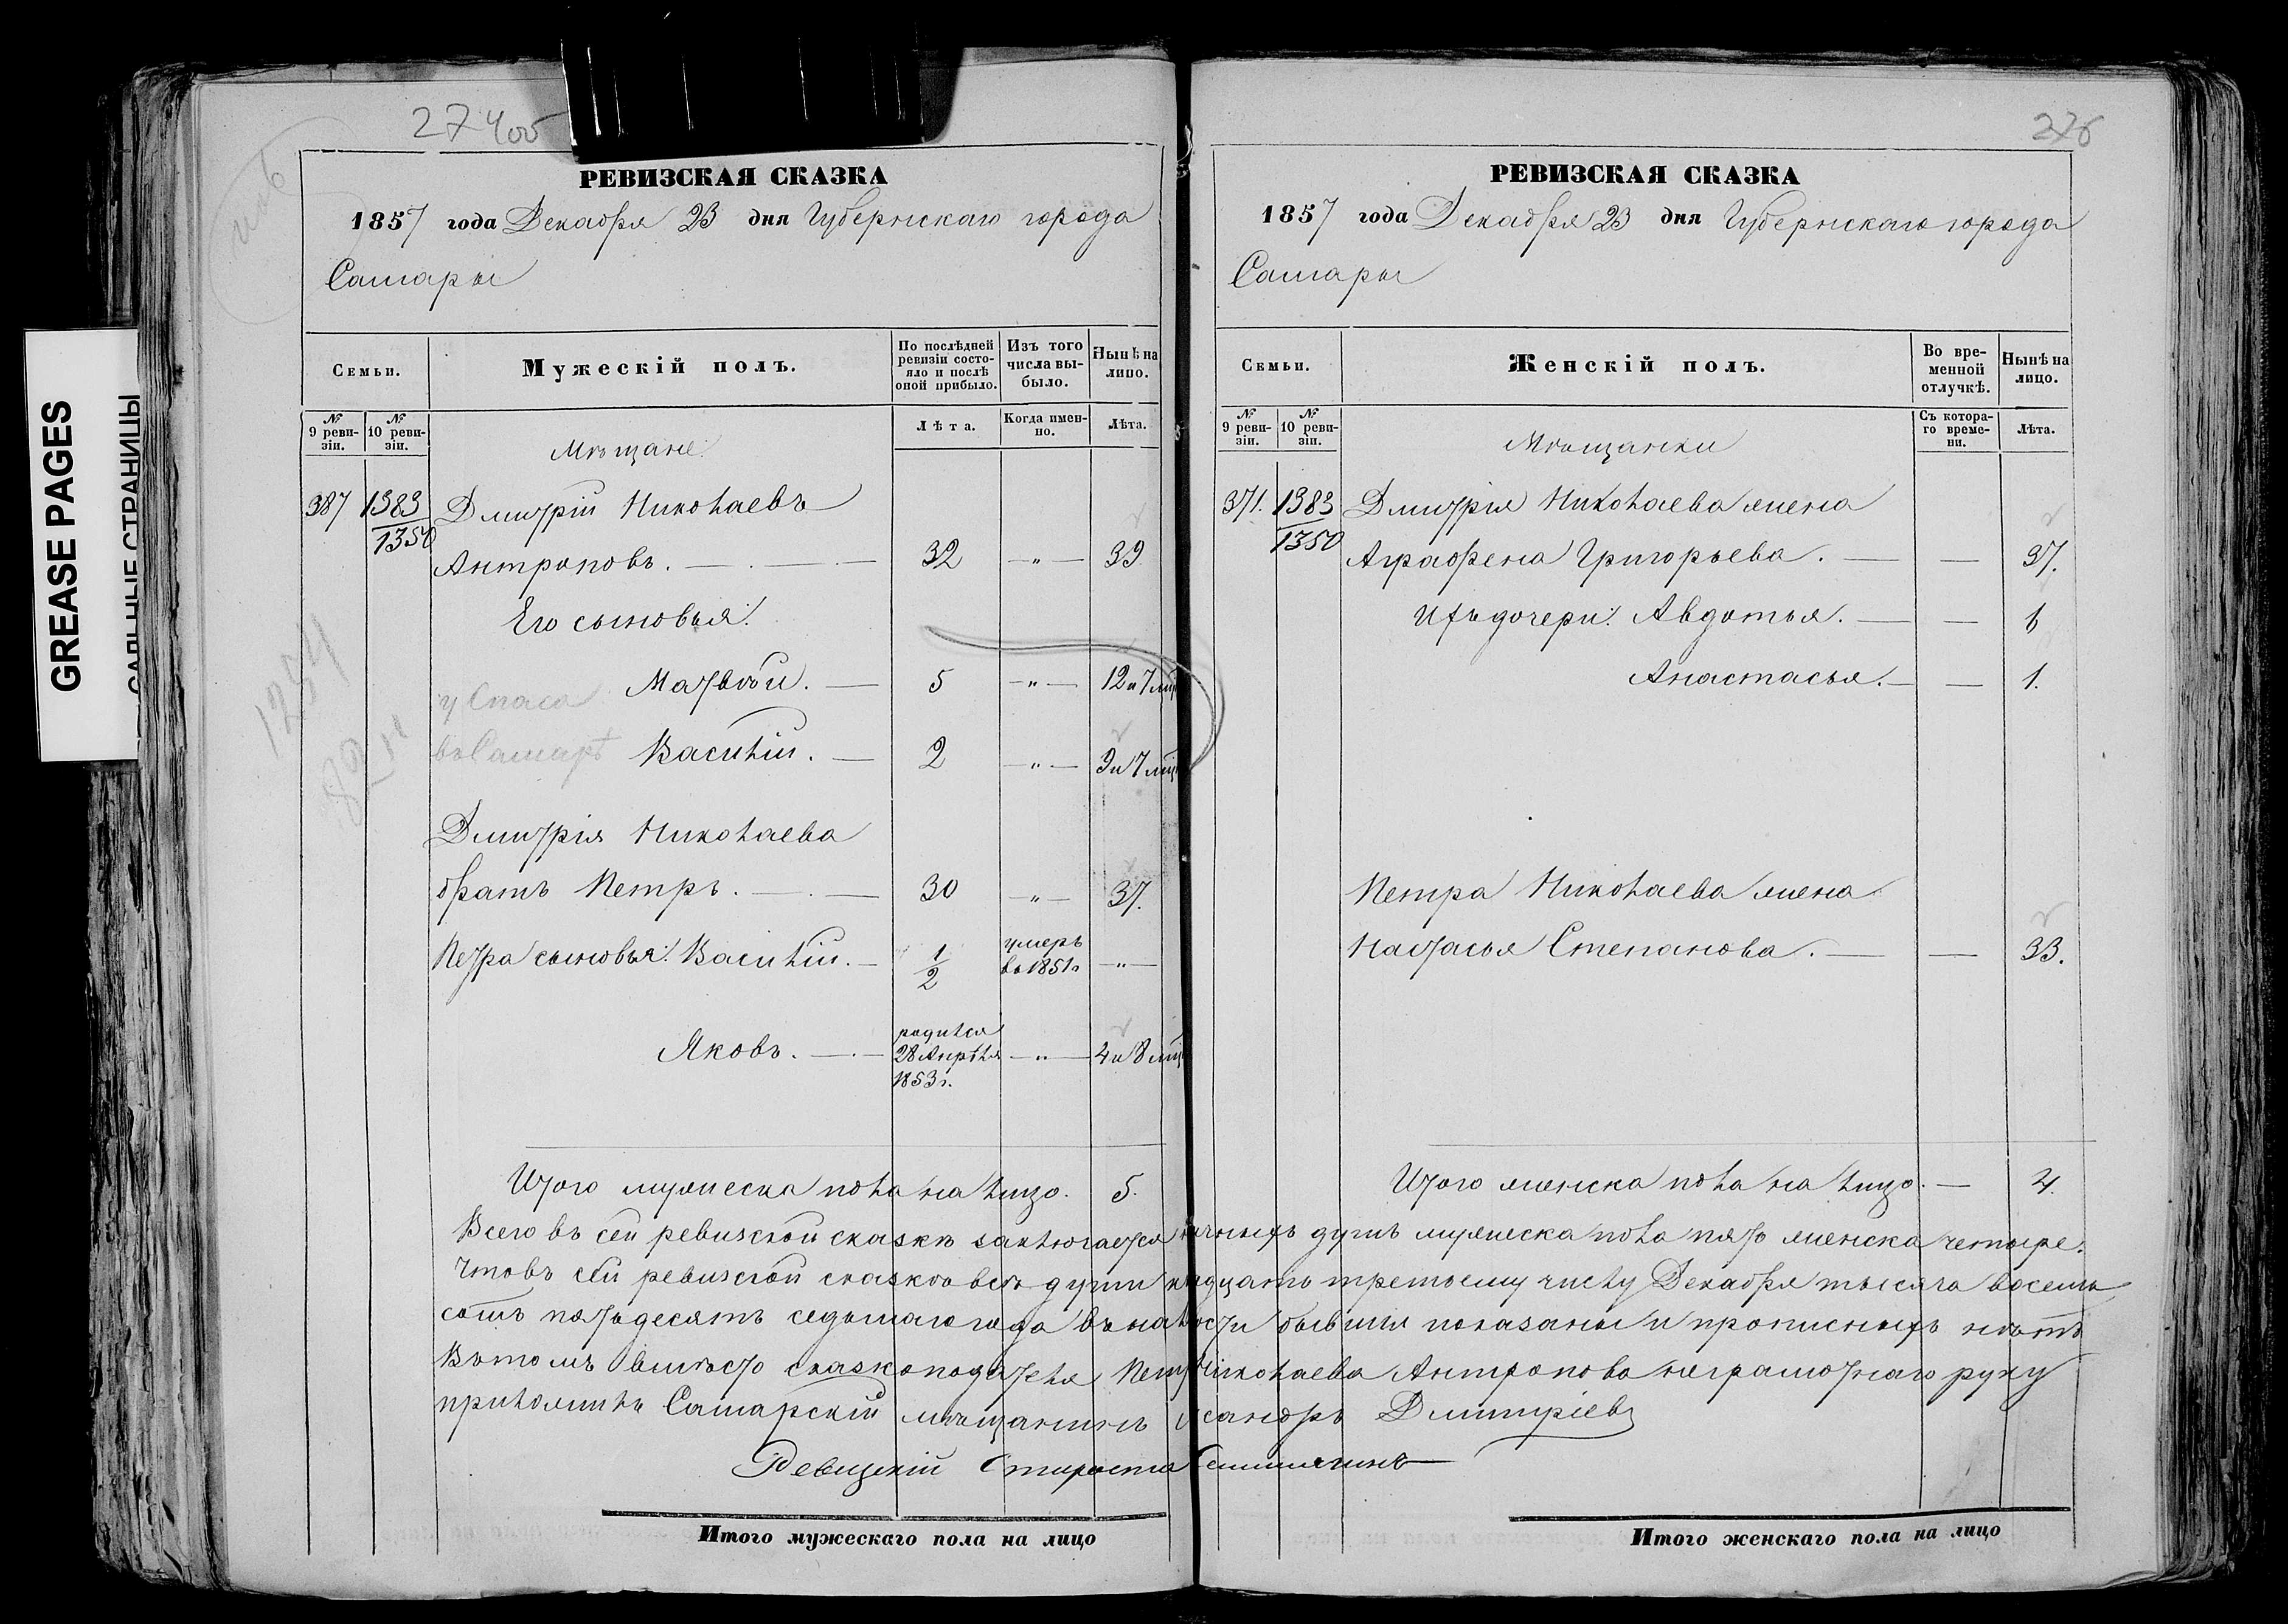 27 400
РЕВИЗСКАЯ СКАЗКА
1857 года Декабря 23 дня Губернскаго города
Самары
Семьи.
Мужескій полъ.
По послѣдней ревизіи состо-
яло и послѣ оной прибыло.
Изъ того числа вы-
было.
Нынѣ на лицо.
№ 9 реви-
зіи.
№ 10 реви-
зіи.
Лѣта.
Когда имен-
но.
Лѣта.
Мѣщане:
387 1383 Дмитрій Николаевъ
1350
Антроповъ. 32 —"— 39
Его сыновья:
Матвѣй. 5 —"— 12 и 7 мц
у Спаса
въ Самарѣ
Василій. 2 —"— 9 и 7 мц
Дмитрія Николаева
братъ Петръ. 30 —"— 37.
Петра сыновья: Василій. 1/2 умеръ въ 1851 г. —"—
Яковъ. родился 28 Апрѣля 1853 г. —"— 4 и 8 мц
1254
Итого мужеска пола на лицо. 5.
РЕВИЗСКАЯ СКАЗКА
1857 года Декабря 23 дня Губернскаго города
Самары
Семьи.
Женскій полъ.
Во вре-
менной отлучкѣ.
Нынѣ на лицо.
№ 9 реви-
зіи.
№ 10 реви-
зіи.
Съ котора-
го време-
ни.
Лѣта.
Мѣщанки
371. 1383 Дмитрія Николаева жена
1350
Аграфена Григорьева. — 37.
Ихъ дочери: Авдотья. — 6
Анастасья. — 1.
Петра Николаева жена
Настасья Степанова. — 33.
Итого женска пола на лицо. — 4.
Всего въ сей ревизской сказкѣ заключается личныхъ душъ мужеска пола пять женска четыре.
Что въ сей ревизской сказкѣ всѣ души къ дцать третьему числу Декабря тысяча восемь
сотъ пятьдесятъ седьмаго года въ наличности бывшія показаны и прописныхъ нѣтъ
Въ томъ вмѣсто сказкоподателя Петра Николаева Антропова неграмотнаго руку
приложилъ Самарскій мѣщанинъ сандръ Дмитріевъ
Ревизскій Староста
Итого мужескаго пола на лицо
Итого женскаго пола на лицо
GREASE PAGES
САЛЬНЫЕ СТРАНИЦЫ